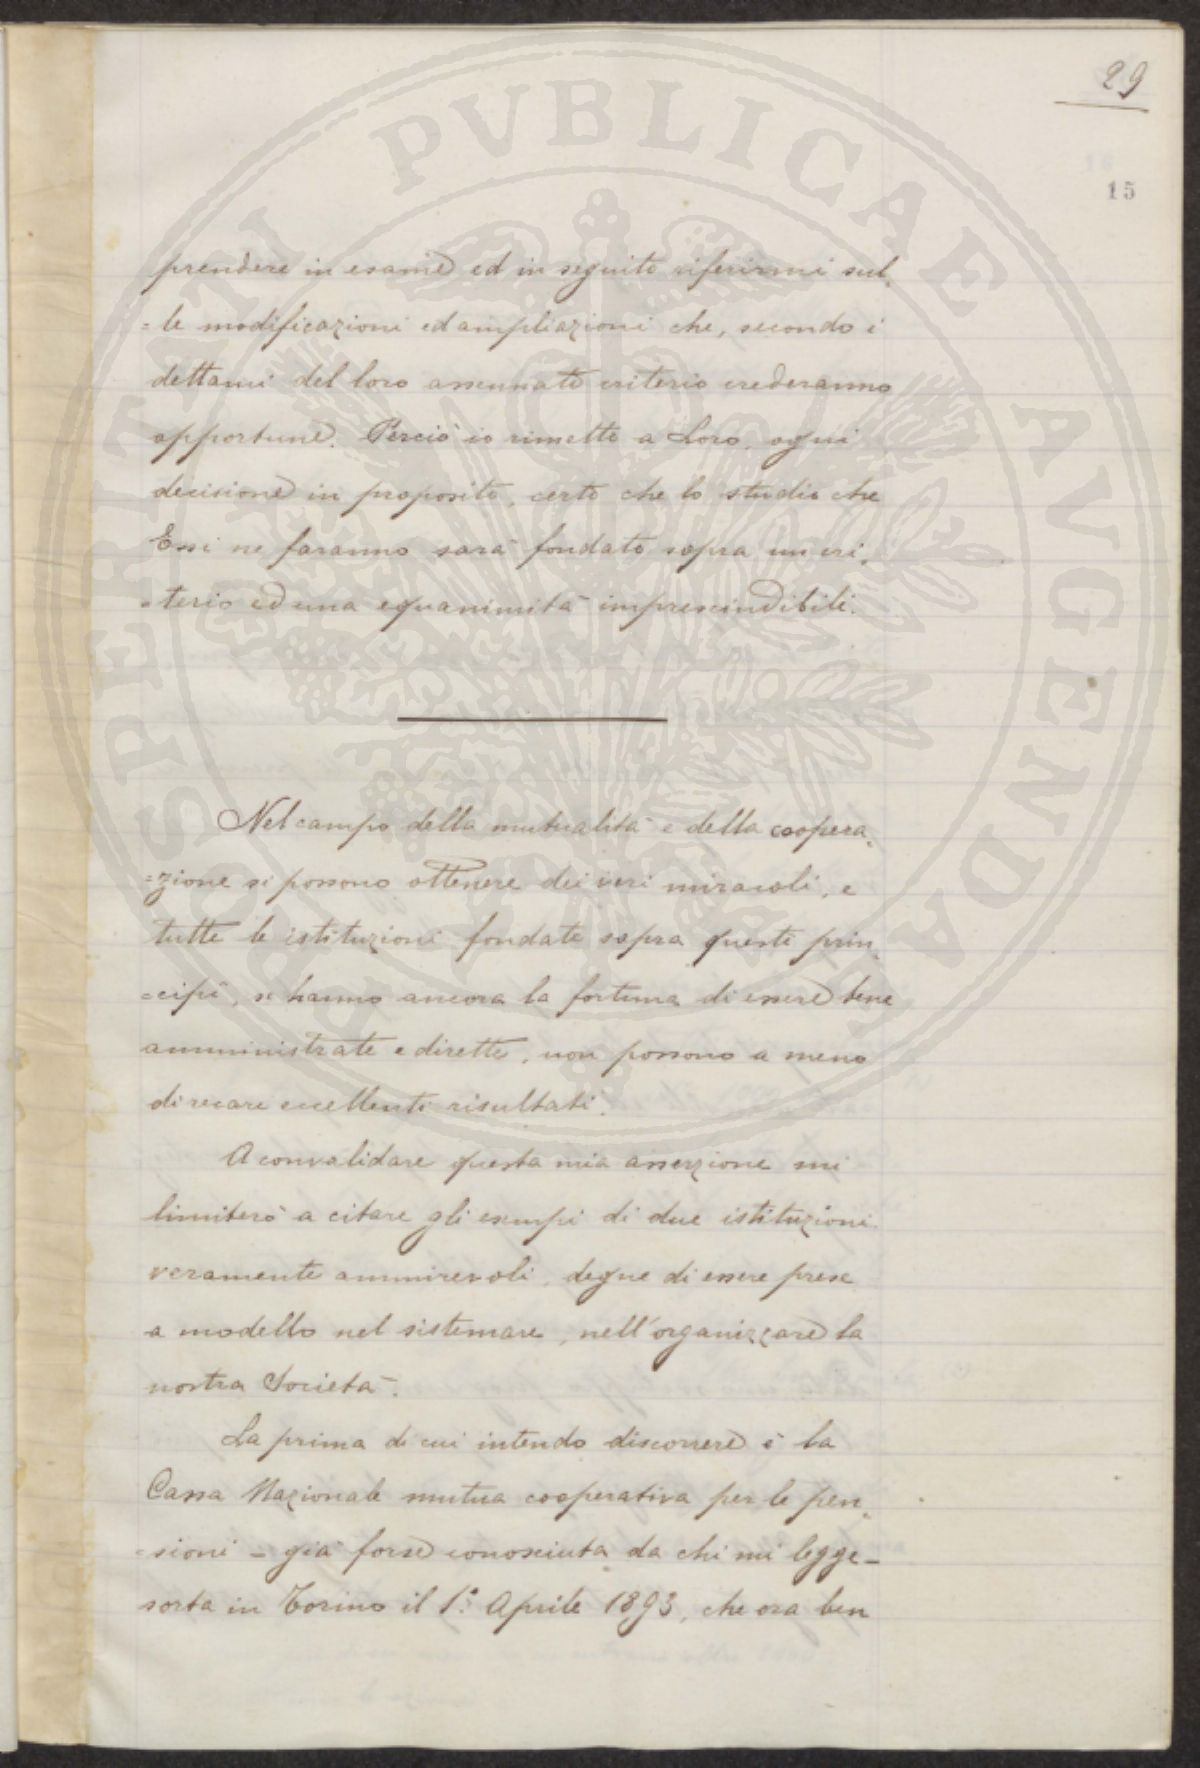 29
15
prendere in esame ed in seguito riferirmi sul-
=le modificazioni ed ampliazioni che, secondo i
dettami del loro assennato criterio crederanno
opportune. Perciò io rimetto a Loro, ogni
decisione in proposito, certo che lo studio che
Essi ne faranno sarà fondato sopra un cri-
=terio ed una equanimità imprescindibili.
Nel campo della mutualità e della coopera-
=zione si possono ottenere dei veri miracoli, e
tutte le istituzioni fondate sopra questi prin-
=cipî, se hanno ancora la fortuna di essere bene
amministrate e dirette, non possono a meno
di recare eccellenti risultati.
A convalidare questa mia asserzione mi
limiterò a citare gli esempi di due istituzioni
veramente ammirevoli, degne di essere prese
a modello nel sistemare, nell'organizzare la
nostra Società.
La prima di cui intendo discorrere è la
Cassa Nazionale mutua cooperativa per le pen-
=sioni - già forse conosciuta da chi mi legge -
sorta in Torino il 1.° Aprile 1893, che ora ben
PROSPERITATI PVBLICAE AVGENDAE